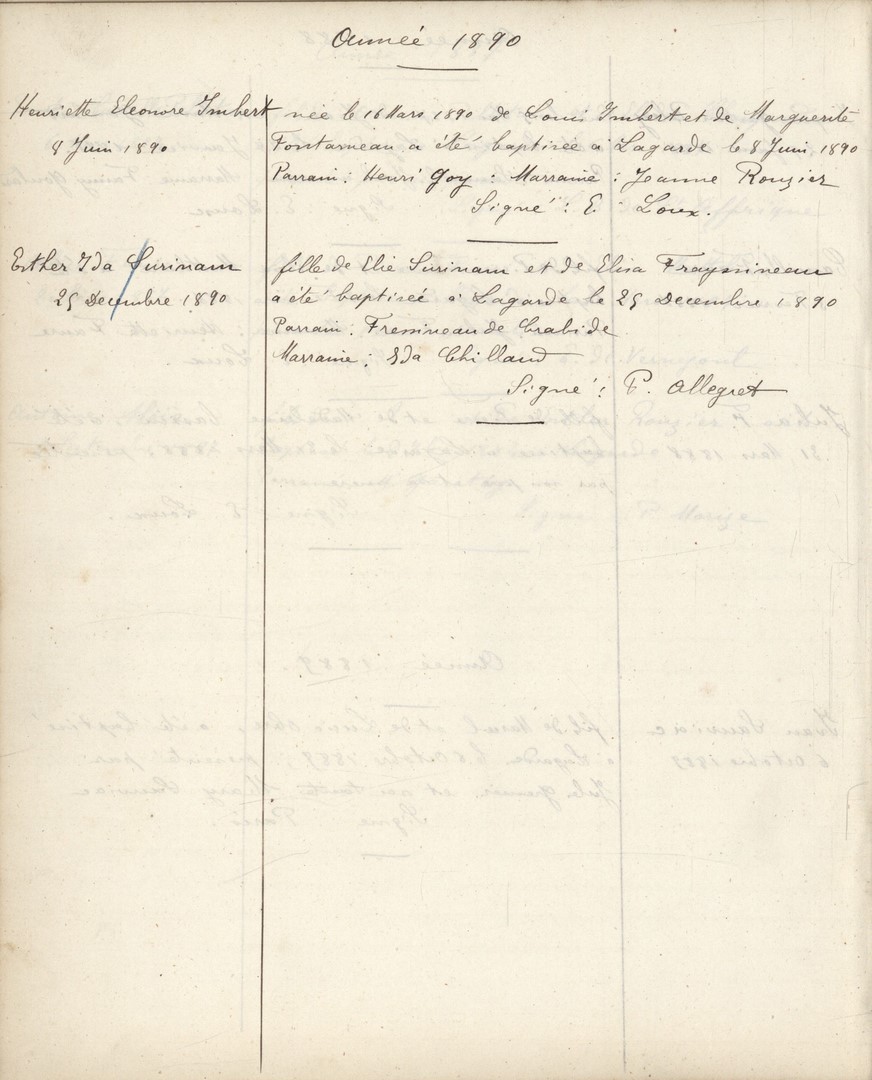 Année 1890
Henriette Eleonore Imbert née le 16 Mars 1890 de Louis Imbert et de Marguerite
8 Juin 1890 Fontarneau a été baptisée à Lagarde le 8 Juin 1890
Parrain : Henri Goy : Marraine : Jeanne Rouzier
Signé : E. Loux.
Esther Ida Surinam fille de Elie Surinam et de Elisa Frayssineau
25 Decembre 1890 a été baptisée à Lagarde le 25 Decembre 1890
Parrain : Fressineau de Crabide
Marraine : Ida Chillaud
Signé : P. Allegret